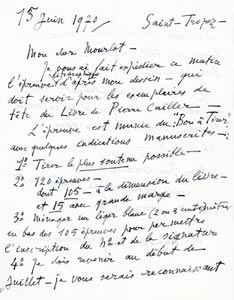 15 Juin 1970 Saint-Tropez
Mon cher Mourlot -
je vous ai fait expédier ce matin
lithographique
l'épreuve d'après mon dessin - qui
doit servir pour les exemplaires de
tête du Livre de Pierre Cailler -
L'épreuve est munie du "Bon à Tirer"
avec quelques indications manuscrites -:
1º Tirer le plus soutenu possible -
2º 120 épreuves -
dont 105 - à la dimension du livre -
et 15 avec grande marge -
3º Ménager un léger blanc (2 ou 3 centimètres)
en bas des 105 épreuves pour permettre
l'inscription du Nº et de la signature
4º je dois revenir au début de
Juillet - je vous serais reconnaissant